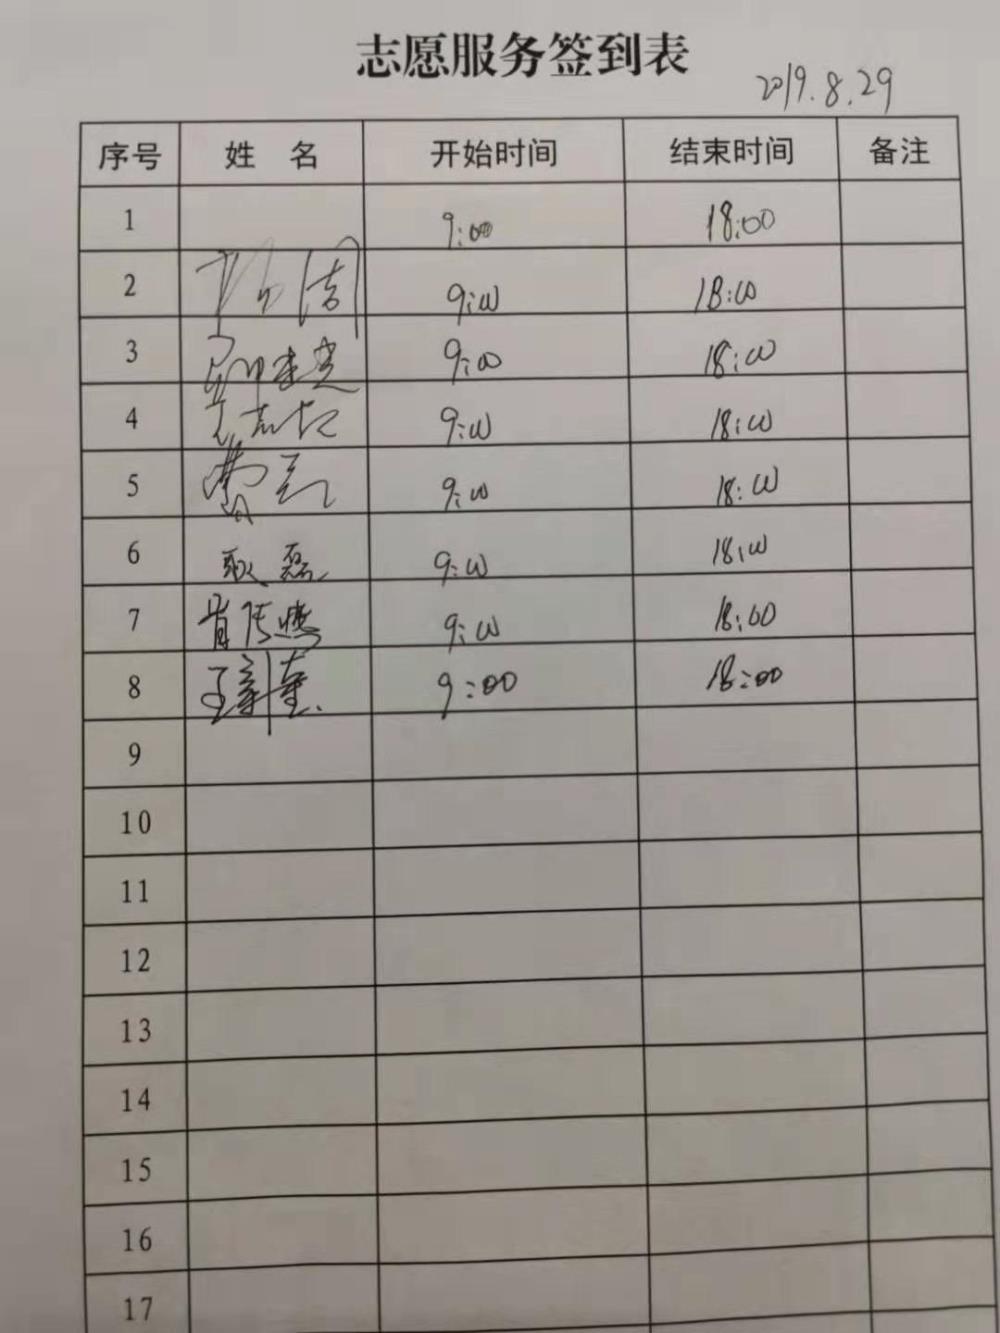 志愿服务签到表
2019.8.29
序号 姓名 开始时间 结束时间 备注
1 9:00 18:00
2 9:00 18:00
3 9:00 18:00
4 9:00 18:00
5 9:00 18:00
6 耿磊 9:00 18:00
7 肖传 9:00 18:00
8 王新 9:00 18:00
9
10
11
12
13
14
15
16
17